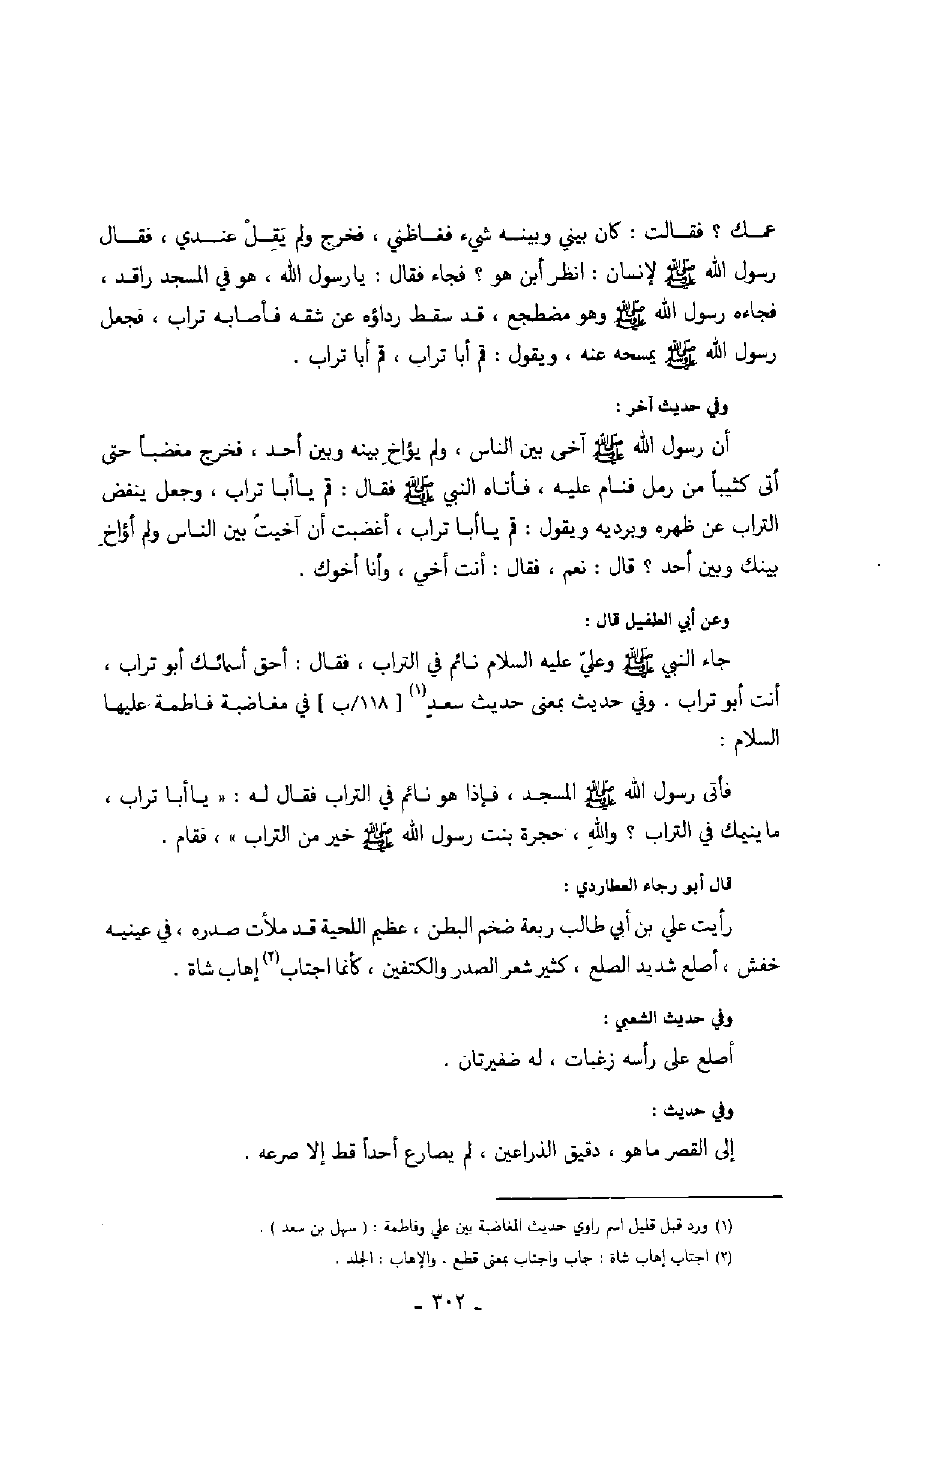 عمك ؟ فقالت : كان بيني وبينه شيء فغاظني ، فخرج ولم يَقِلْ عندي ، فقال
رسول الله ﷺ لإنسان : انظر أين هو ؟ فجاء فقال : يارسول الله ، هو في المسجد راقد ،
فجاءه رسول الله ﷺ وهو مضطجع ، قد سقط رداؤه عن شقه فأصابه تراب ، فجعل
رسول الله ﷺ يمسحه عنه ، ويقول : قم أبا تراب ، قم أبا تراب .
وفي حديث آخر :
أن رسول الله ﷺ آخى بين الناس ، ولم يؤاخِ بينه وبين أحد ، فخرج مغضباً حتى
أتى كثيباً من رمل فنام عليه ، فأتاه النبي ﷺ فقال : قم ياأبا تراب ، وجعل ينفض
التراب عن ظهره وبرديه ويقول : قم ياأبا تراب ، أغضبت أن آخيتُ بين الناس ولم أؤاخِ
بينك وبين أحد ؟ قال : نعم ، فقال : أنت أخي ، وأنا أخوك .
وعن أبي الطفيل قال :
جاء النبي ﷺ وعليّ عليه السلام نائم في التراب ، فقال : أحق أسمائك أبو تراب ،
أنت أبو تراب . وفي حديث بمعنى حديث سعدٍ(١) [ ١١٨/ب ] في مغاضبة فاطمة عليها
السلام :
فأتى رسول الله ﷺ المسجد ، فإذا هو نائم في التراب فقال له : « ياأبا تراب ،
ماينيمك في التراب ؟ واللهِ ، حجرة بنت رسول الله ﷺ خير من التراب » ، فقام .
قال أبو رجاء العطاردي :
رأيت علي بن أبي طالب ربعة ضخم البطن ، عظيم اللحية قد ملأت صدره ، في عينيه
خفش ، أصلع شديد الصلع ، كثير شعر الصدر والكتفين ، كأنما اجتاب(٢) إهاب شاة .
وفي حديث الشعبي :
أصلع على رأسه زغبات ، له ضفيرتان .
وفي حديث :
إلى القصر ماهو ، دقيق الذراعين ، لم يصارع أحداً قط إلا صرعه .
(١) ورد قبل قليل اسم راوي حديث المغاضبة بين علي وفاطمة : ( سهل بن سعد ) .
(٢) اجتاب إهاب شاة : جاب واجتاب بمعنى قطع . والإهاب : الجلد .
ـ ٣٠٢ ـ